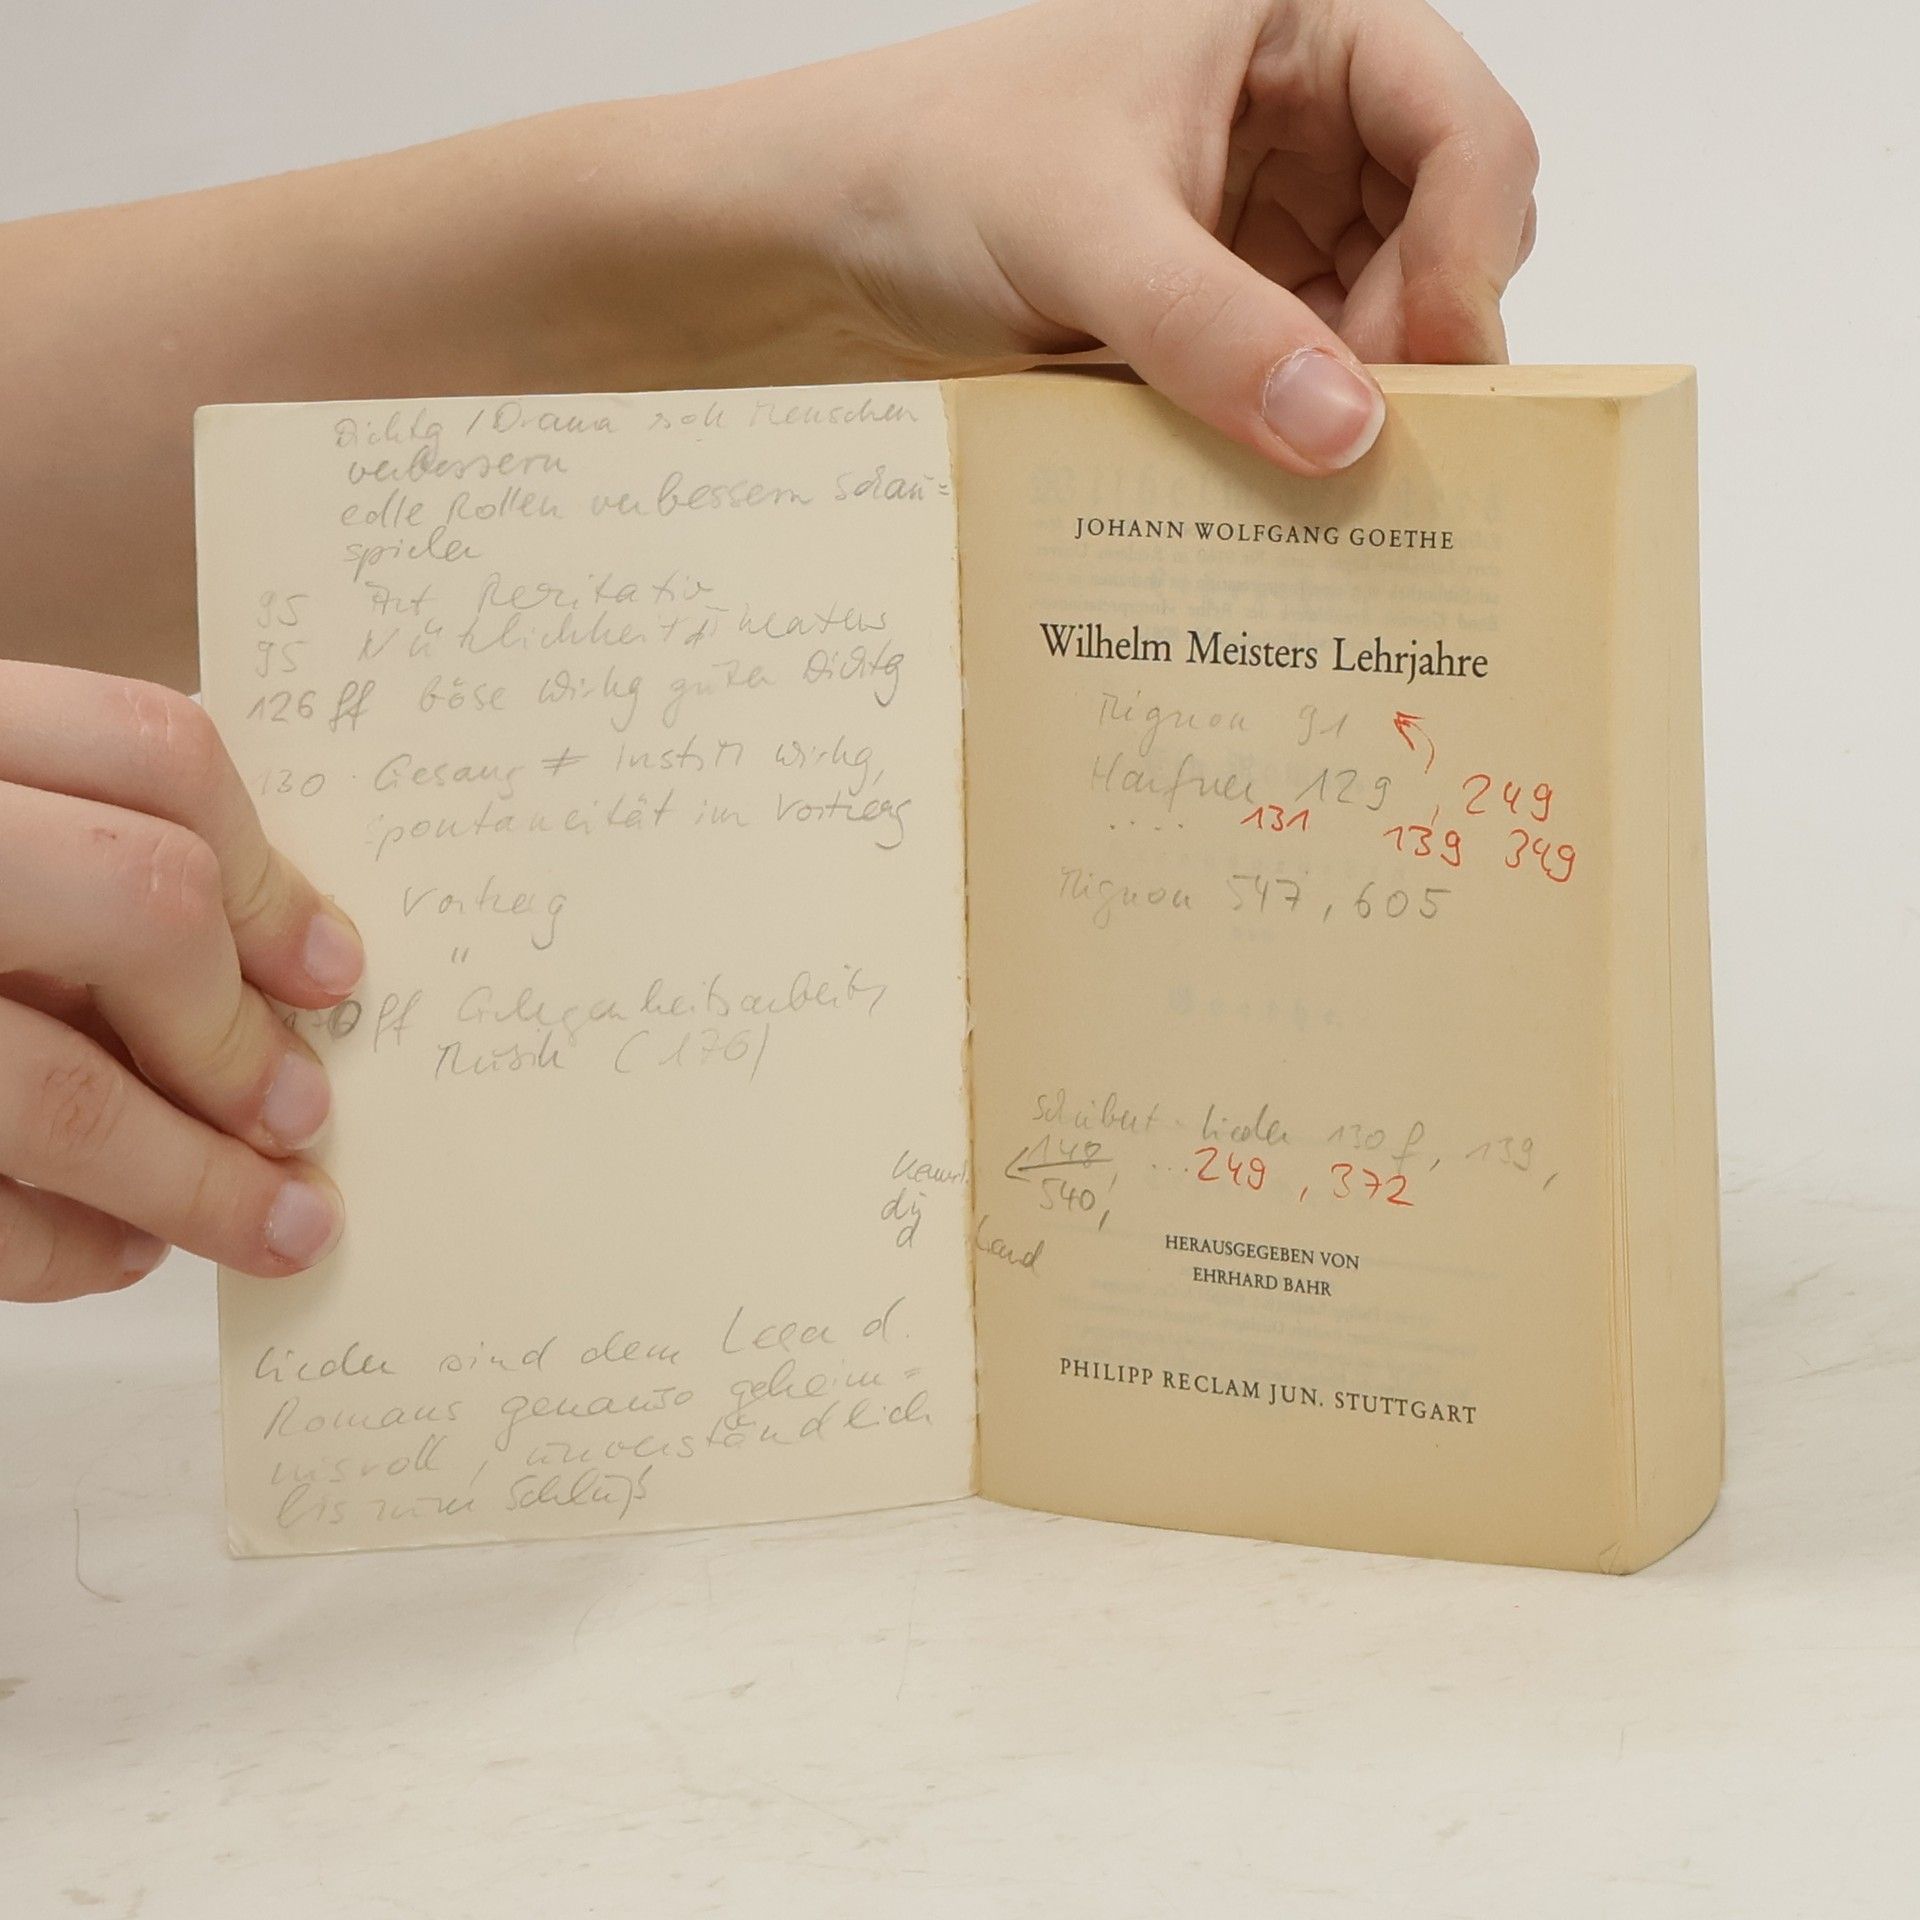 Dichtg / Drama soll Menschen
verbessern
edle Rollen verbessern Schau=
spieler
95 Art Rezitativ
95 Nützlichkeit d Theaters
126 ff böse Wirkg guter Dichtg
130 Gesang ≠ Instr Wirkg,
Spontaneität im Vortrag
Vortrag
"
ff Gelegenheitsarbeit,
Musik (176)
Kennst
du
d
Lieder sind dem Leser d.
Romans genauso geheim=
nisvoll, unverständlich
bis zum Schluß
JOHANN WOLFGANG GOETHE
Wilhelm Meisters Lehrjahre
Mignon 91
Harfner 129, 249
.... 131 139 349
Mignon 547, 605
Schubert-Lieder 130 f, 139,
148, ...249, 372
540,
Land
HERAUSGEGEBEN VON
EHRHARD BAHR
PHILIPP RECLAM JUN. STUTTGART